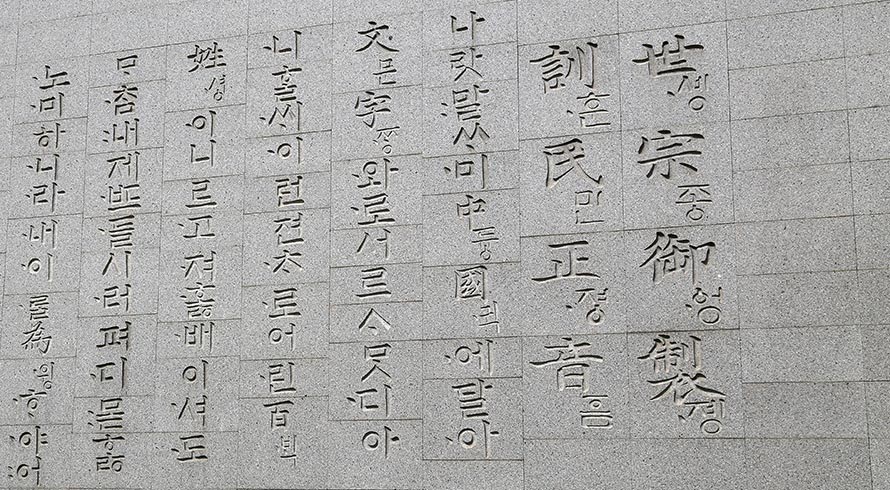 世솅宗종御ᅌᅥᆼ製졩
訓훈民민正졍音ᅙᅳᆷ
나랏말ᄊᆞ미中듕國귁에달아
文문字ᄍᆞᆼ와로서르ᄉᆞᄆᆞᆺ디아
니ᄒᆞᆯᄊᆡ이런젼ᄎᆞ로어린百ᄇᆡᆨ
姓셩이니르고져홇배이셔도
ᄆᆞᄎᆞᆷ내제ᄠᅳ들시러펴디몯ᄒᆞᇙ
노미하니라내이ᄅᆞᆯ為윙ᄒᆞ야어